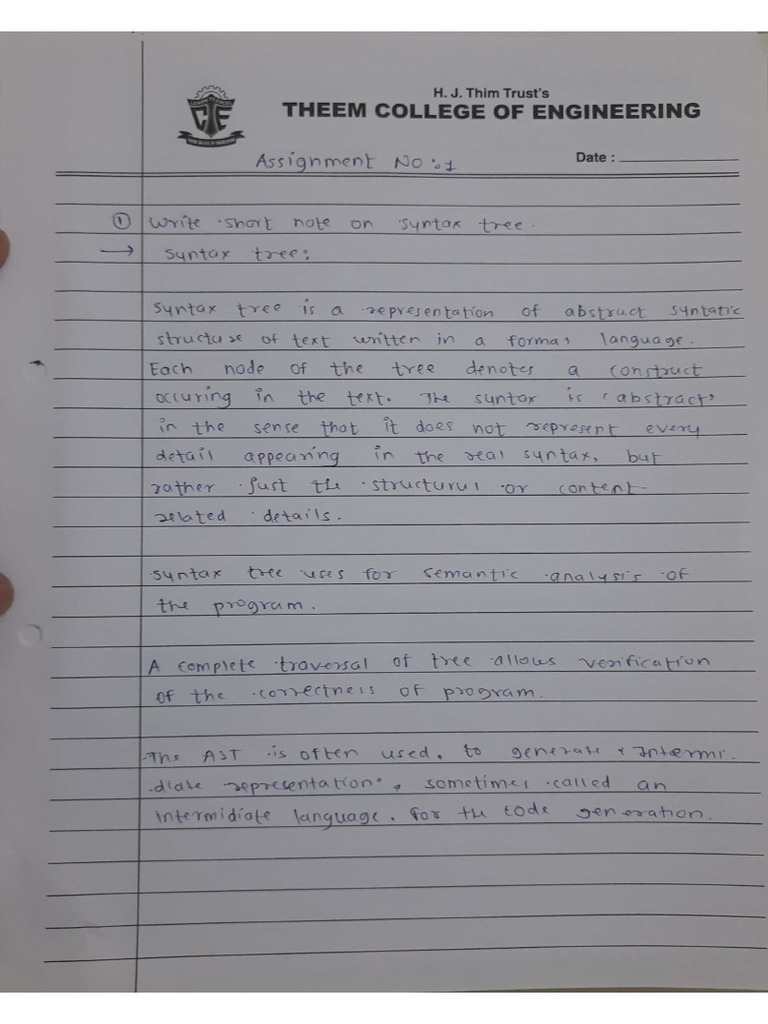 H. J. Thim Trust's
THEEM COLLEGE OF ENGINEERING
Assignment No:1
Date :
① Write short note on syntax tree.
→ Syntax tree:
Syntax tree is a representation of abstract syntatic
structure of text written in a formal language.
Each node of the tree denotes a construct
occuring in the text. The syntax is 'abstract'
in the sense that it does not represent every
detail appearing in the real syntax, but
rather just the structurul or content
related details.
Syntax tree uses for semantic analysis of
the program.
A complete traversal of tree allows verification
of the correctness of program.
The AST is often used, to generate 'Intermi
diate representation', sometimes called an
intermidiate language, for the code generation.